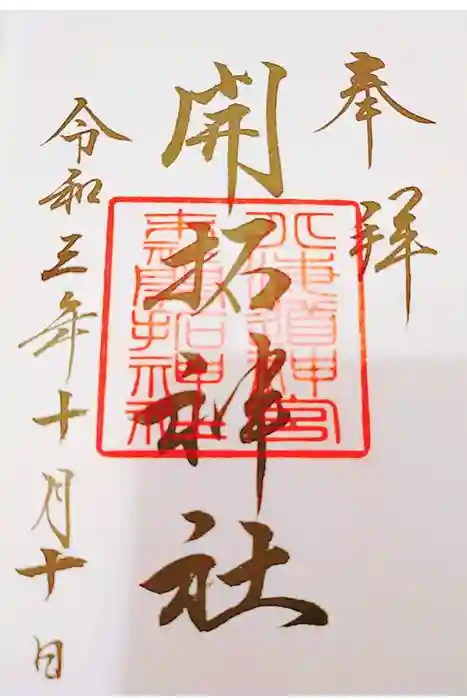 奉拝
開拓神社
北海道神宮
末社開拓神社
令和三年十月十日